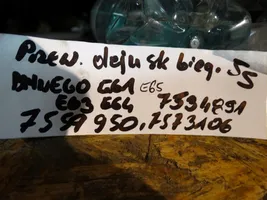 PRZEW. oleju sk bieg. SS
BMW E60 E61 E65
E63 E64 7534891
7559950, 7573106